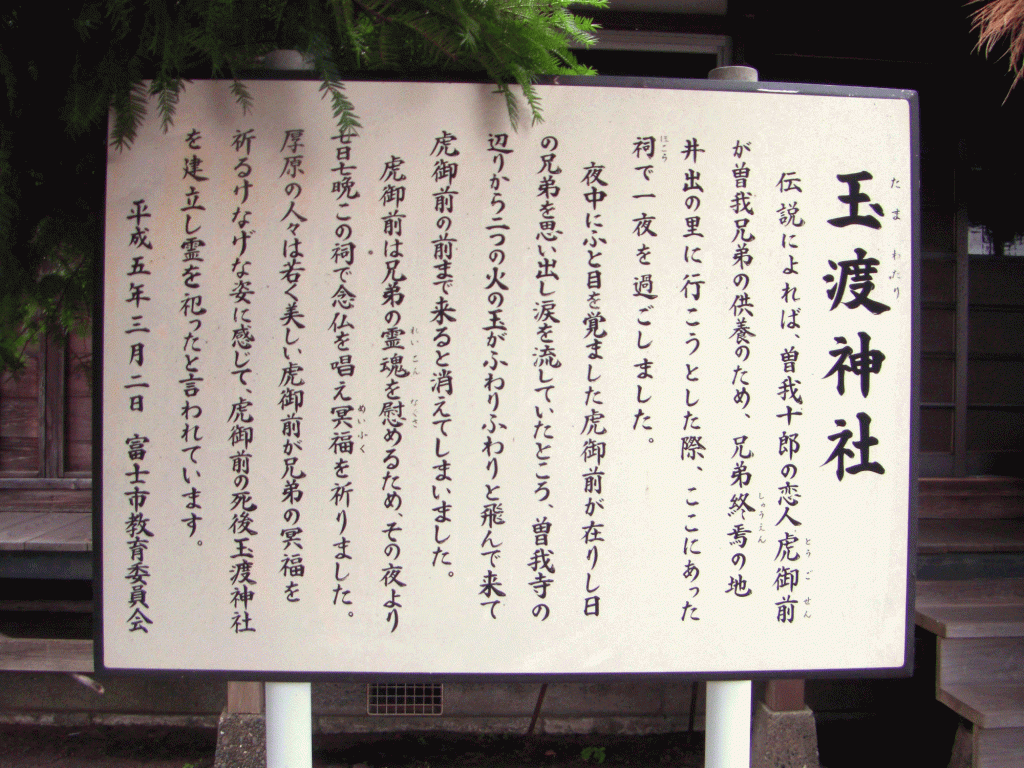 玉渡神社
伝説によれば、曽我十郎の恋人虎御前
が曽我兄弟の供養のため、兄弟終焉の地
井出の里に行こうとした際、ここにあった
祠で一夜を過ごしました。
夜中にふと目を覚ました虎御前が在りし日
の兄弟を思い出し涙を流していたところ、曽我寺の
辺りから二つの火の玉がふわりふわりと飛んで来て
虎御前の前まで来ると消えてしまいました。
虎御前は兄弟の霊魂を慰めるため、その夜より
廿日七晩この祠で念仏を唱え冥福を祈りました。
厚原の人々は若く美しい虎御前が兄弟の冥福を
祈るけなげな姿に感じて、虎御前の死後玉渡神社
を建立し霊を祀ったと言われています。
平成五年三月二日 富士市教育委員会